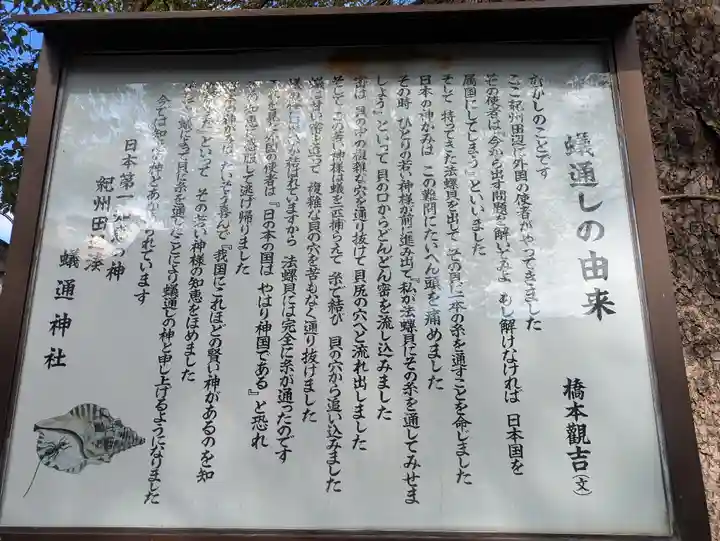 蟻通しの由来
橋本觀吉(文)
むかしのことです
ここ紀州田辺に外国の使者がやってきました
その使者は「今から出す問題を解いてみよ もし解けなければ 日本国を
属国にしてしまう」といいました
そして 持ってきた法螺貝を出して その貝に一本の糸を通すことを命じました
日本の神がみは この難問にたいへん頭を痛めました
その時 ひとりの若い神様が前に進み出て「私が法螺貝にその糸を通してみせま
しょう」といって 貝の口からどんどん蜜を流し込みました
蜜は 貝の中の複雑な穴を通り抜けて 貝尻の穴へと流れ出しました
そして この若い神様は蟻を一匹捕らえて 糸で結び 貝の穴から追い込みました
蟻は甘い蜜を追って 複雑な貝の穴を苦もなく通り抜けました
糸が結ばれていますから 法螺貝には完全に糸が通ったのです
これを見た外国の使者は『日の本の国は やはり神国である』と恐れ
逃げ帰りました
神がみは たいそう喜んで『我国にこれほどの賢い神があるのを知
らなかった』といって その若い神様の知恵をほめました
蟻によって貝に糸を通したことにより蟻通しの神と申し上げるようになりました
今では知恵の神とあがめられています
日本第一知恵の神
紀州田辺湊
蟻通神社